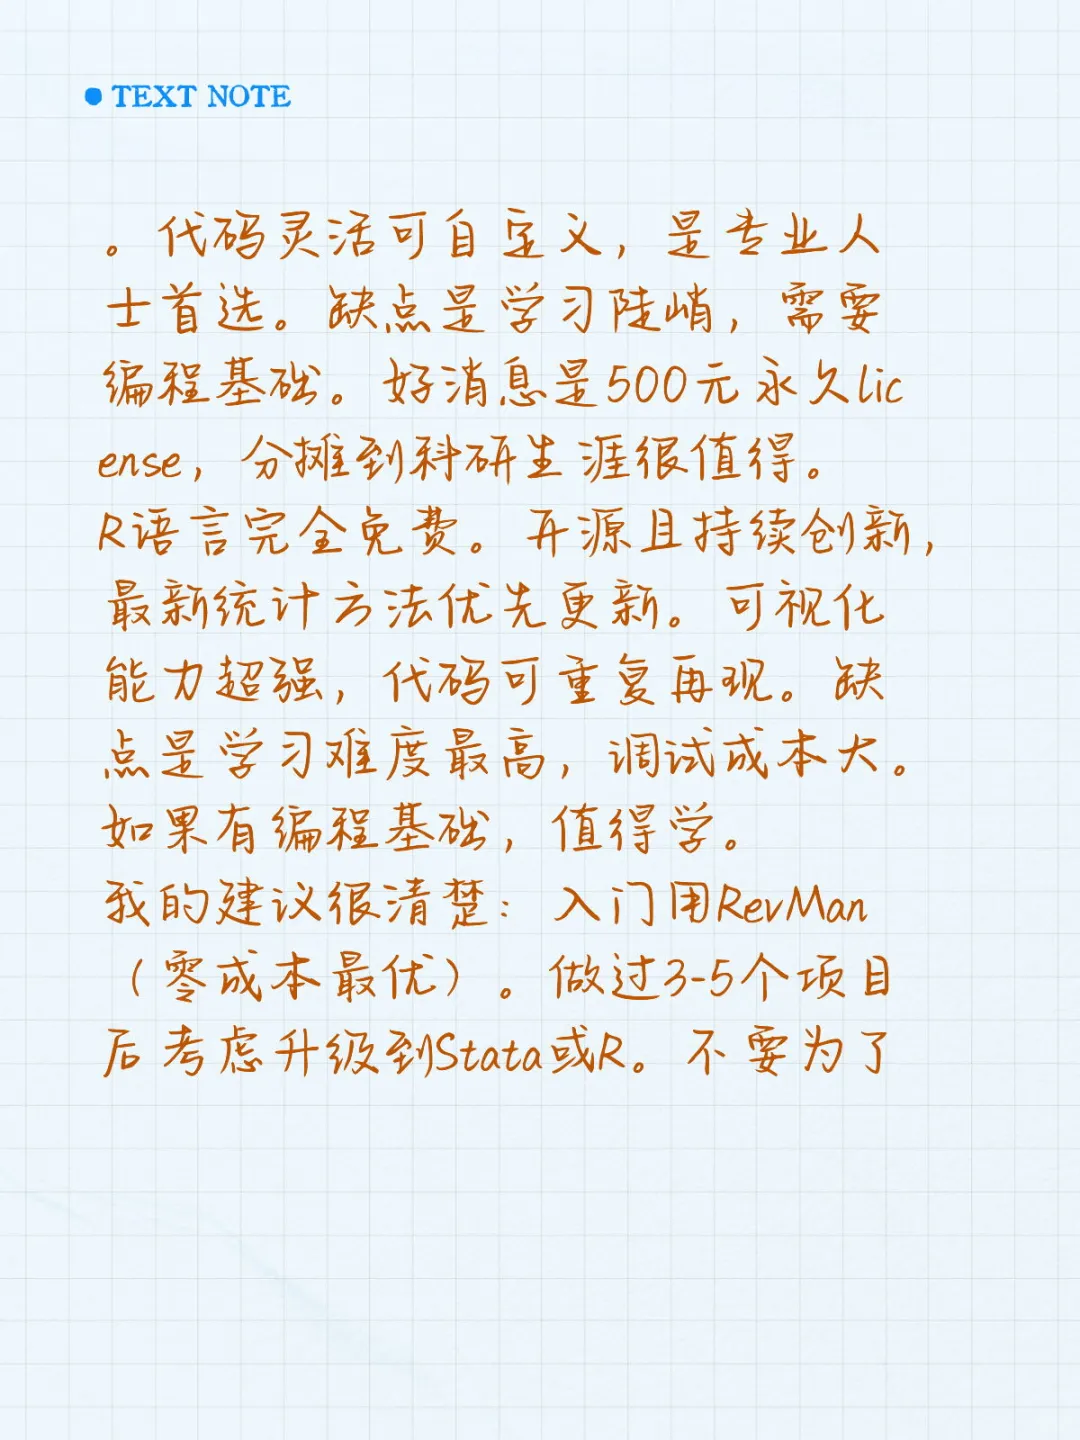 TEXT NOTE
。代码灵活可自定义，是专业人
士首选。缺点是学习陡峭，需要
编程基础。好消息是500元永久lic
ense，分摊到科研生涯很值得。
R语言完全免费。开源且持续创新，
最新统计方法优先更新。可视化
能力超强，代码可重复再现。缺
点是学习难度最高，调试成本大。
如果有编程基础，值得学。
我的建议很清楚：入门用RevMan
（零成本最优）。做过3-5个项目
后考虑升级到Stata或R。不要为了